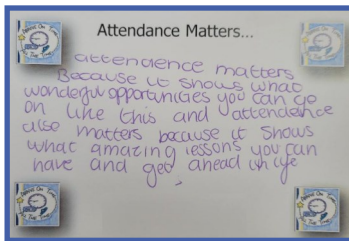 Attendance Matters...
attendence matters
Because it shows what
wonderful opportunities you can go
on like this and attendence
also matters because it shows
what amazing lessons you can
have and get ahead in life